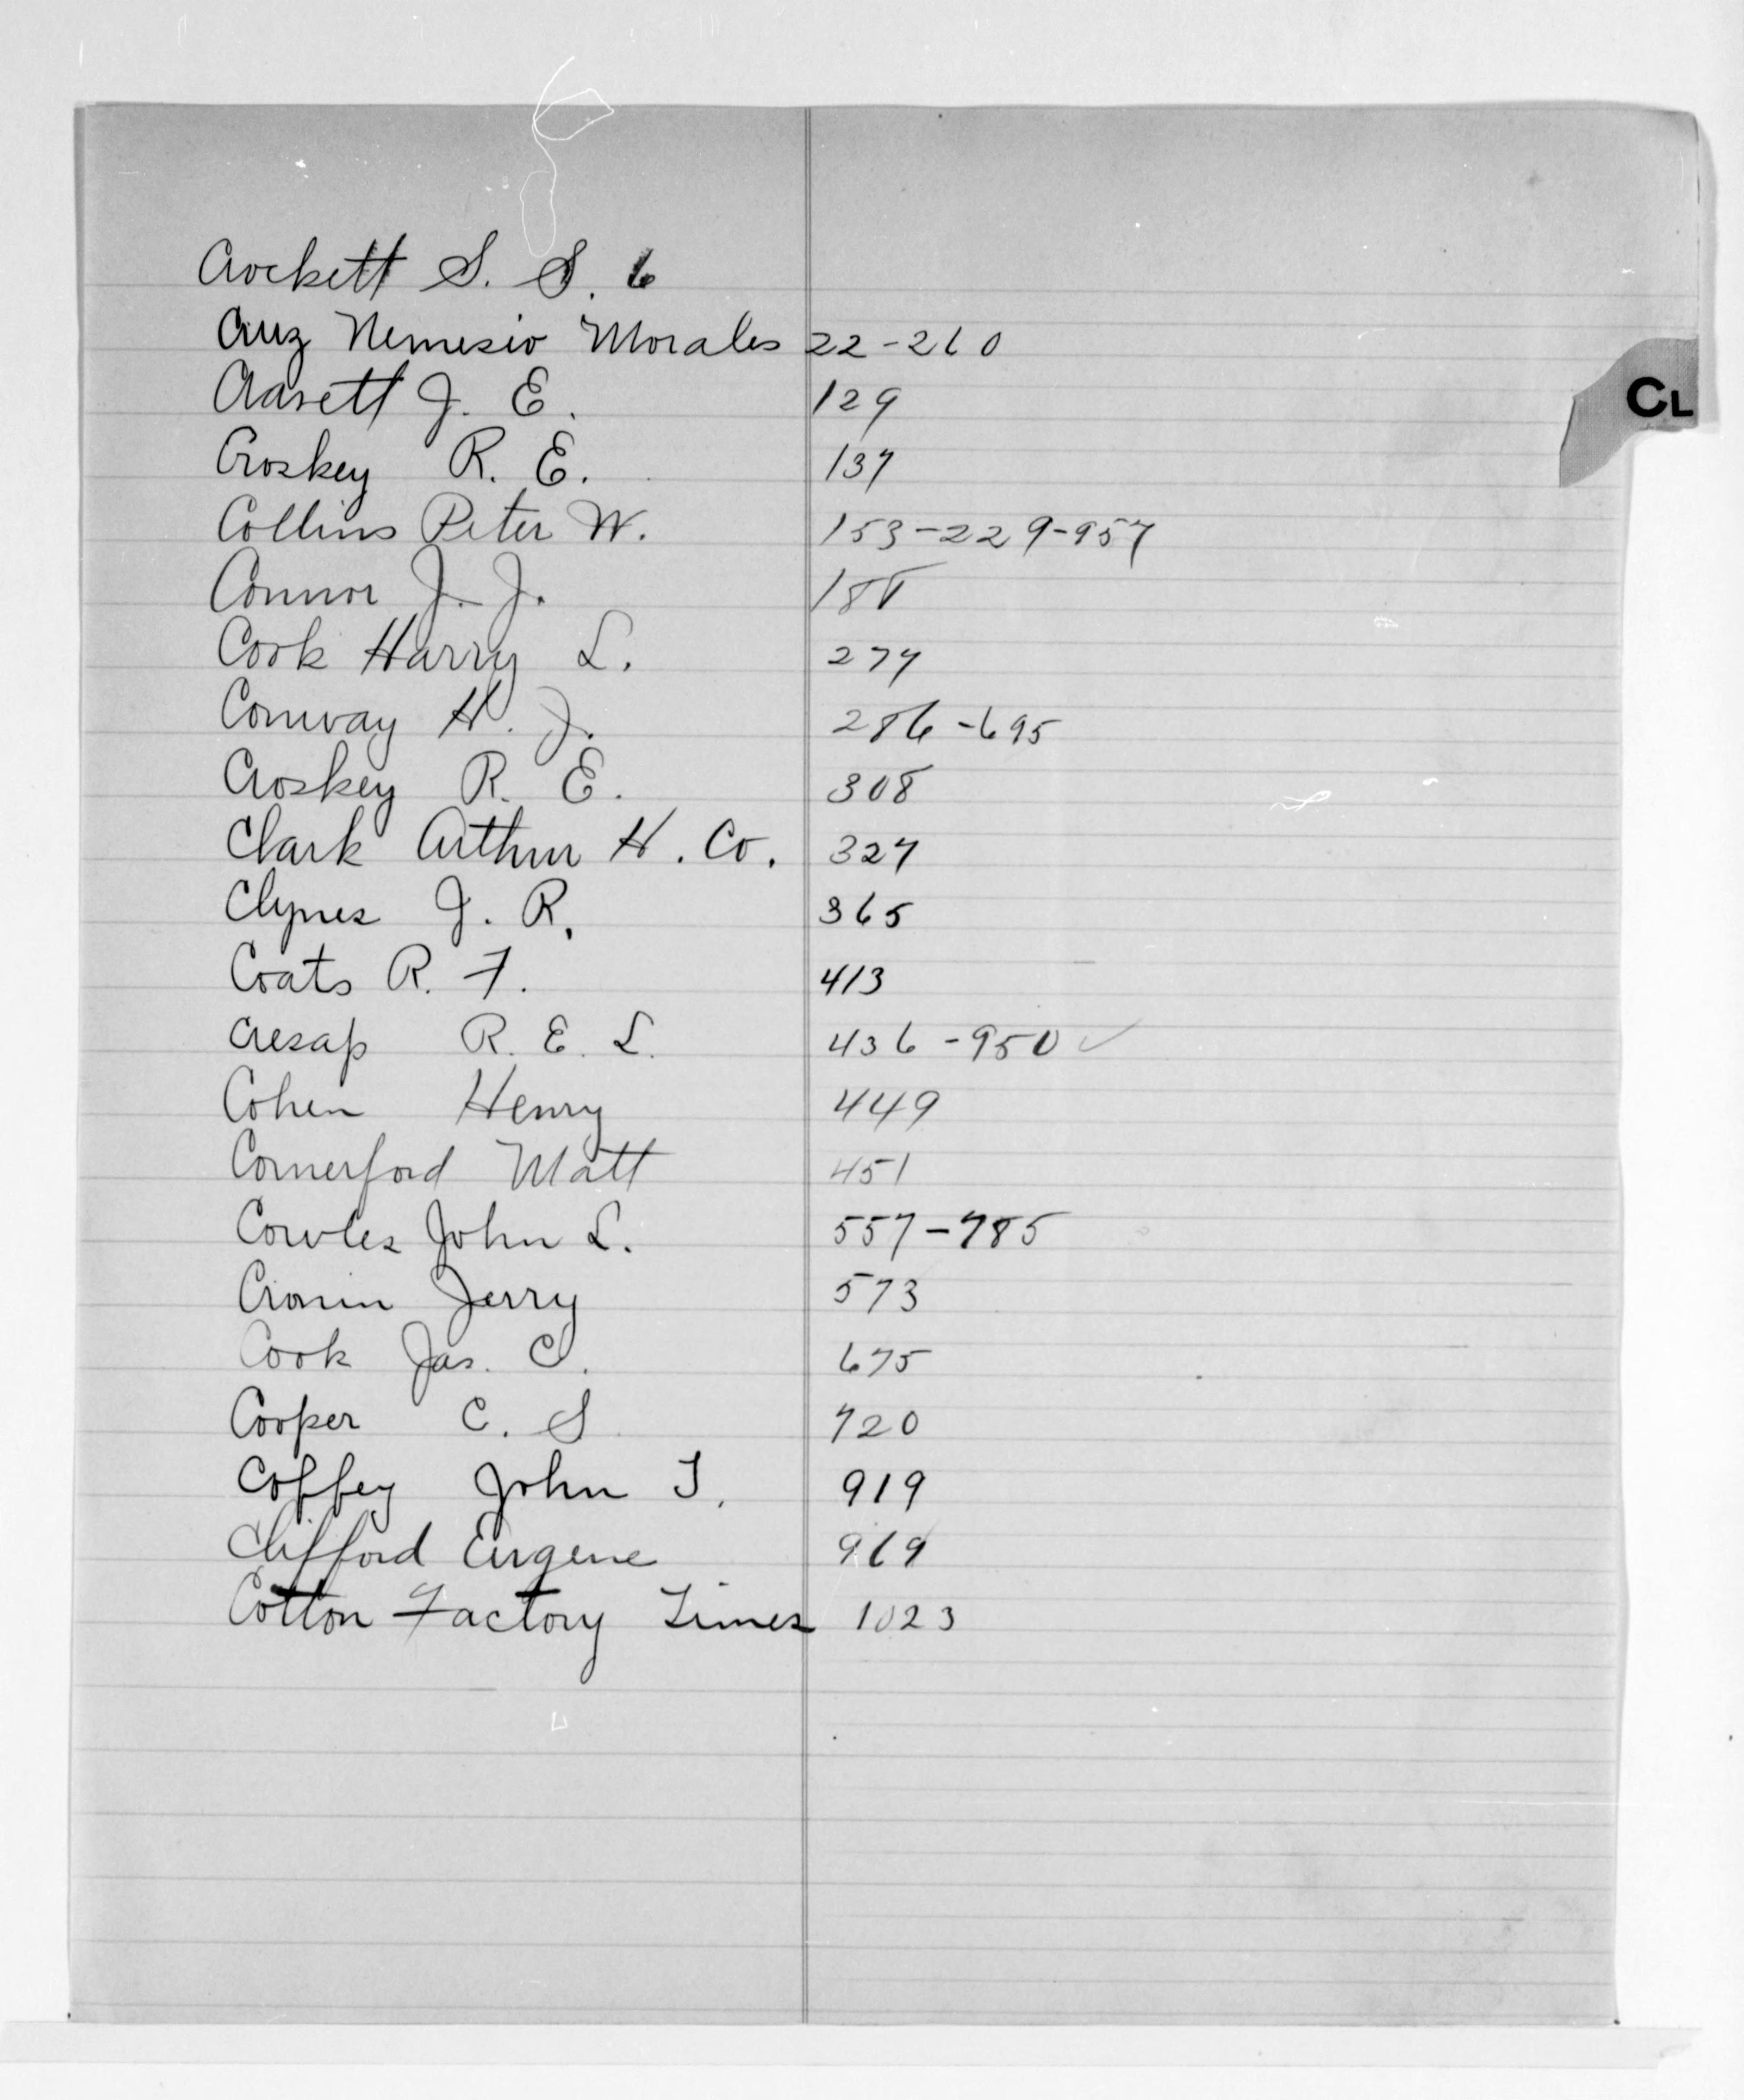 Crockett S. S. 6
Cruz Nemesio Morales 22-260
CL
Clarett J. E. 129
Croskey R. E. 137
Collins Peter W. 153-229-957
Connor J. J. 188
Cook Harry L. 277
Conway H. J. 286-695
Croskey R. E. 308
Clark Arthur H. Co. 327
Clynes J. R. 365
Coats R. F. 413
Cresap R. E. L. 436-950 ✓
Cohen Henry 449
Comerford Matt 451
Cowles John L. 557-785
Cronin Jerry 573
Cook Jas. C. 675
Cooper C. S 720
Coffey John T. 919
Clifford Eugene 969
Cotton Factory Times 1023